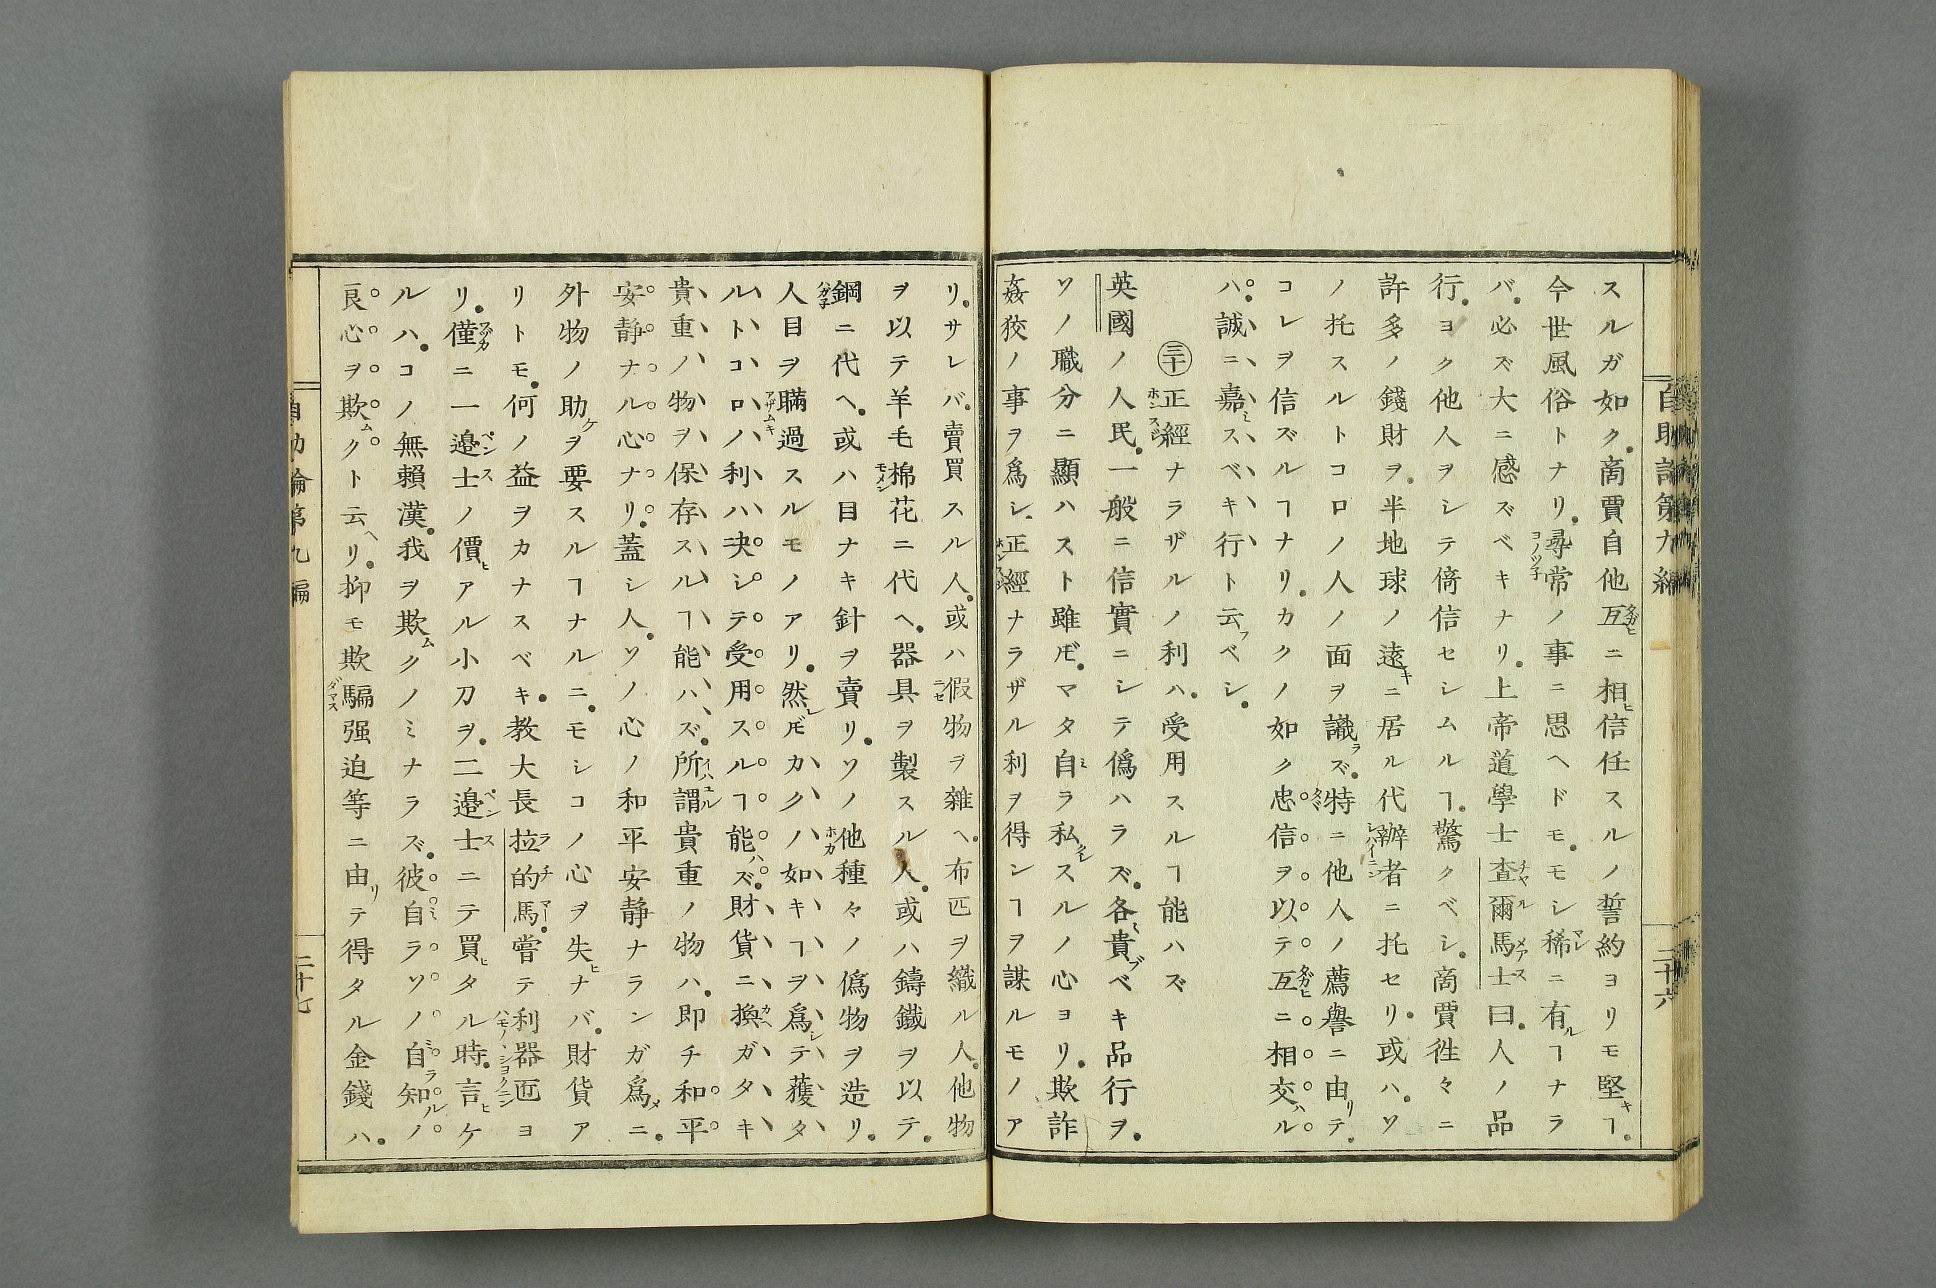 スルガ如ク。商賈自他互ニ相信任スルノ誓約ヨリモ堅キヿ。
今世風俗トナリ。尋常ノ事ニ思ヘドモ。モシ稀ニ有ルヿナラ
バ。必ズ大ニ感ズベキナリ。上帝道學士査爾馬士曰。人ノ品
行。ヨク他人ヲシテ倚信セシムルヿ。驚クベシ。商賈徃々ニ
許多ノ錢財ヲ。半地球ノ遠キニ居ル代辦者ニ托セリ。或ハ。ソ
ノ托スルトコロノ人ノ面ヲ識ラズ。特ニ他人ノ薦譽ニ由リテ。
コレヲ信ズルヿナリ。カクノ如ク忠信ヲ以テ互ニ相交ハル
ハ。誠ニ嘉ミスベキ行ト云フベシ。
三十 正經ナラザルノ利ハ。受用スルヿ能ハズ
英國ノ人民。一般ニ信實ニシテ僞ハラズ。各々貴ブベキ品行ヲ。
ソノ職分ニ顯ハスト雖𪜈。マタ自ラ私スルノ心ヨリ。欺詐
姦狡ノ事ヲ爲シ。正經ナラザル利ヲ得ンヿヲ謀ルモノア
自助論第九編
二十六
リ。サレバ。賣買スル人。或ハ假物ヲ雜ヘ。布匹ヲ織ル人。他物
ヲ以テ羊毛棉花ニ代ヘ。器具ヲ製スル人。或ハ鑄鐵ヲ以テ。
鋼ニ代ヘ。或ハ目ナキ針ヲ賣リ。ソノ他種々ノ僞物ヲ造リ。
人目ヲ瞞過スルモノアリ。然レ𪜈カクノ如キヿヲ爲シテ獲タ
ルトコロノ利ハ決シテ受用スルヿ能ハズ。財貨ニ換ヘガタキ
貴重ノ物ヲ保存スルヿ能ハズ。所謂貴重ノ物ハ。即チ和平
安靜ナル心ナリ。蓋シ人。ソノ心ノ和平安靜ナランガ爲メニ。
外物ノ助ケヲ要スルヿナルニ。モシコノ心ヲ失ヒナバ。財貨ア
リトモ。何ノ益ヲカナスベキ。教大長拉的馬。嘗テ利器匠ヨ
リ。僅ニ一邉士ノ價ヒアル小刀ヲ。二邉士ニテ買ヒタル時。言ヒケ
ルハ。コノ無賴漢。我ヲ欺ムクノミナラズ。彼自ミラソノ自ミラ知ルノ
良心ヲ欺ムクト云ヘリ。抑モ欺騙强迫等ニ由リテ得タル金錢ハ。
自助論第九編
二十七